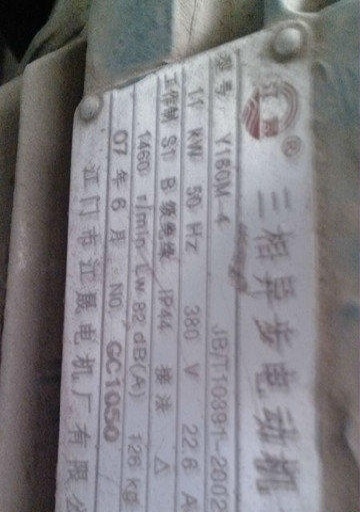 三相异步电动机
型号 Y160M-4 JB/T10391-2002
11 kW 50 Hz 380 V 22.6 A
工作制 S1 B级绝缘 IP44 接法 △
1460 r/min Lw 82 dB(A) 126 kg
07年6月 NO GC1050
江门市江晟电机厂有限公